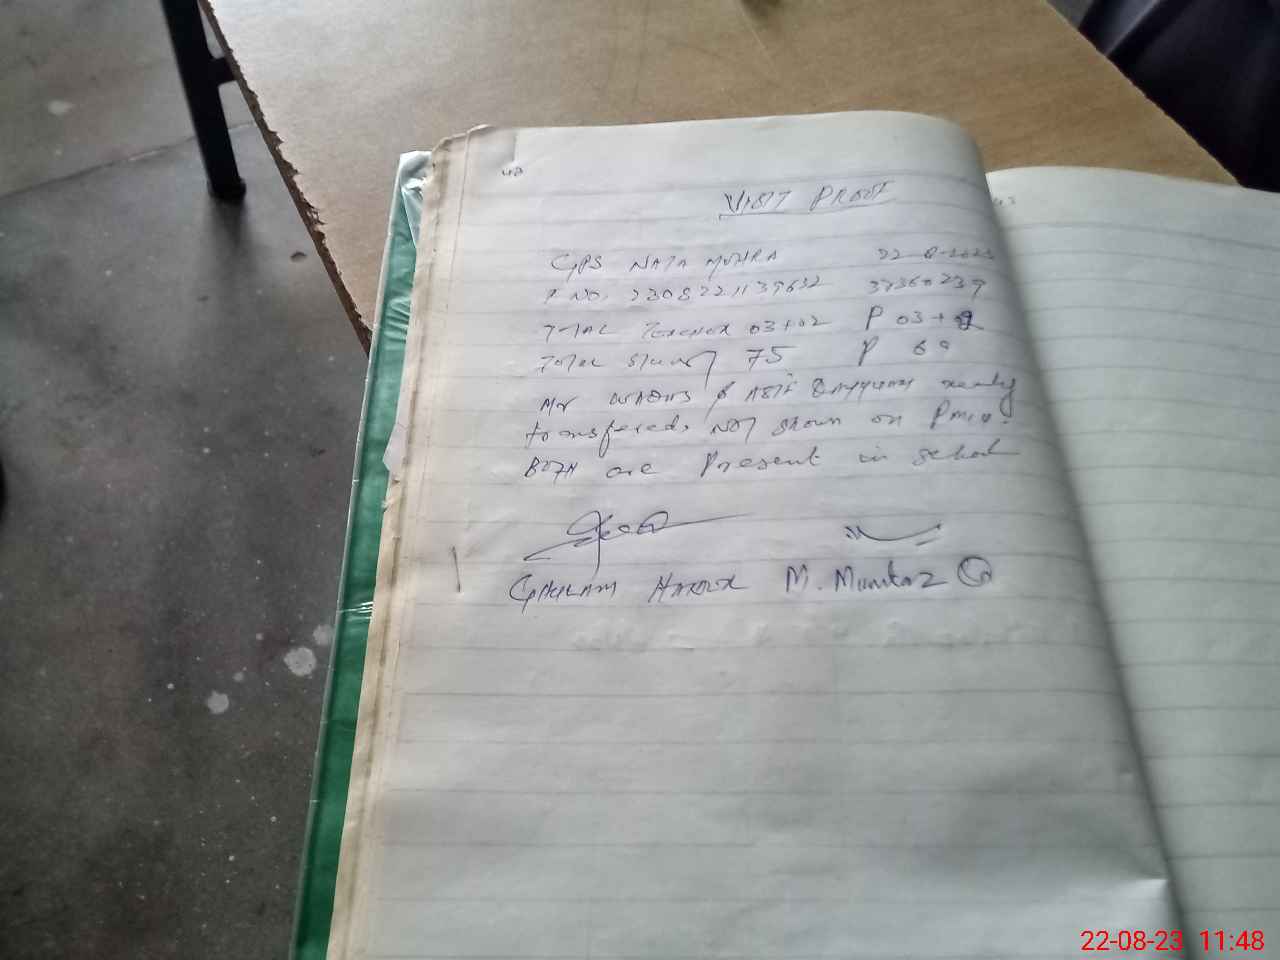 42
VISIT PROOF
GPS NATA MOHRA 22-8-2023
P NO. 2308221139632 37360239
TOTAL Teacher 03+02 P 03+2
TOTAL Student 75 P 69
Mr WAQAS & ASIF newly
transfered, NOT shown on
BOTH are Present in school
GHULAM M. Mumtaz
22-08-23 11:48